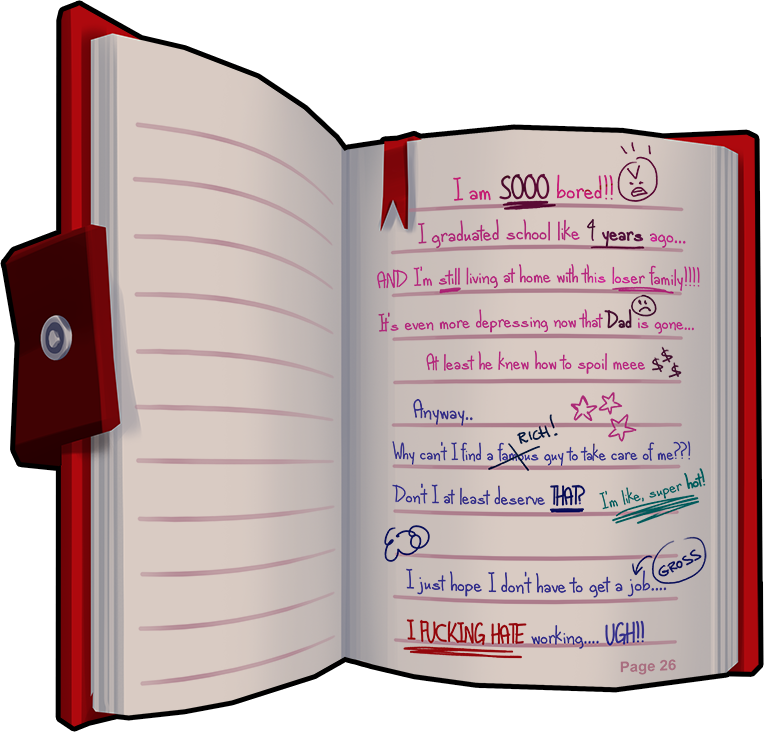 I am SOOO bored!!
I graduated school like 4 years ago...
AND I'm still living at home with this loser family!!!!
It's even more depressing now that Dad is gone...
At least he knew how to spoil meee $$$
Anyway..
RICH!
Why can't I find a famous guy to take care of me??!
Don't I at least deserve THAT? I'm like, super hot!
GROSS
I just hope I don't have to get a job....
I FUCKING HATE working.... UGH!!
Page 26